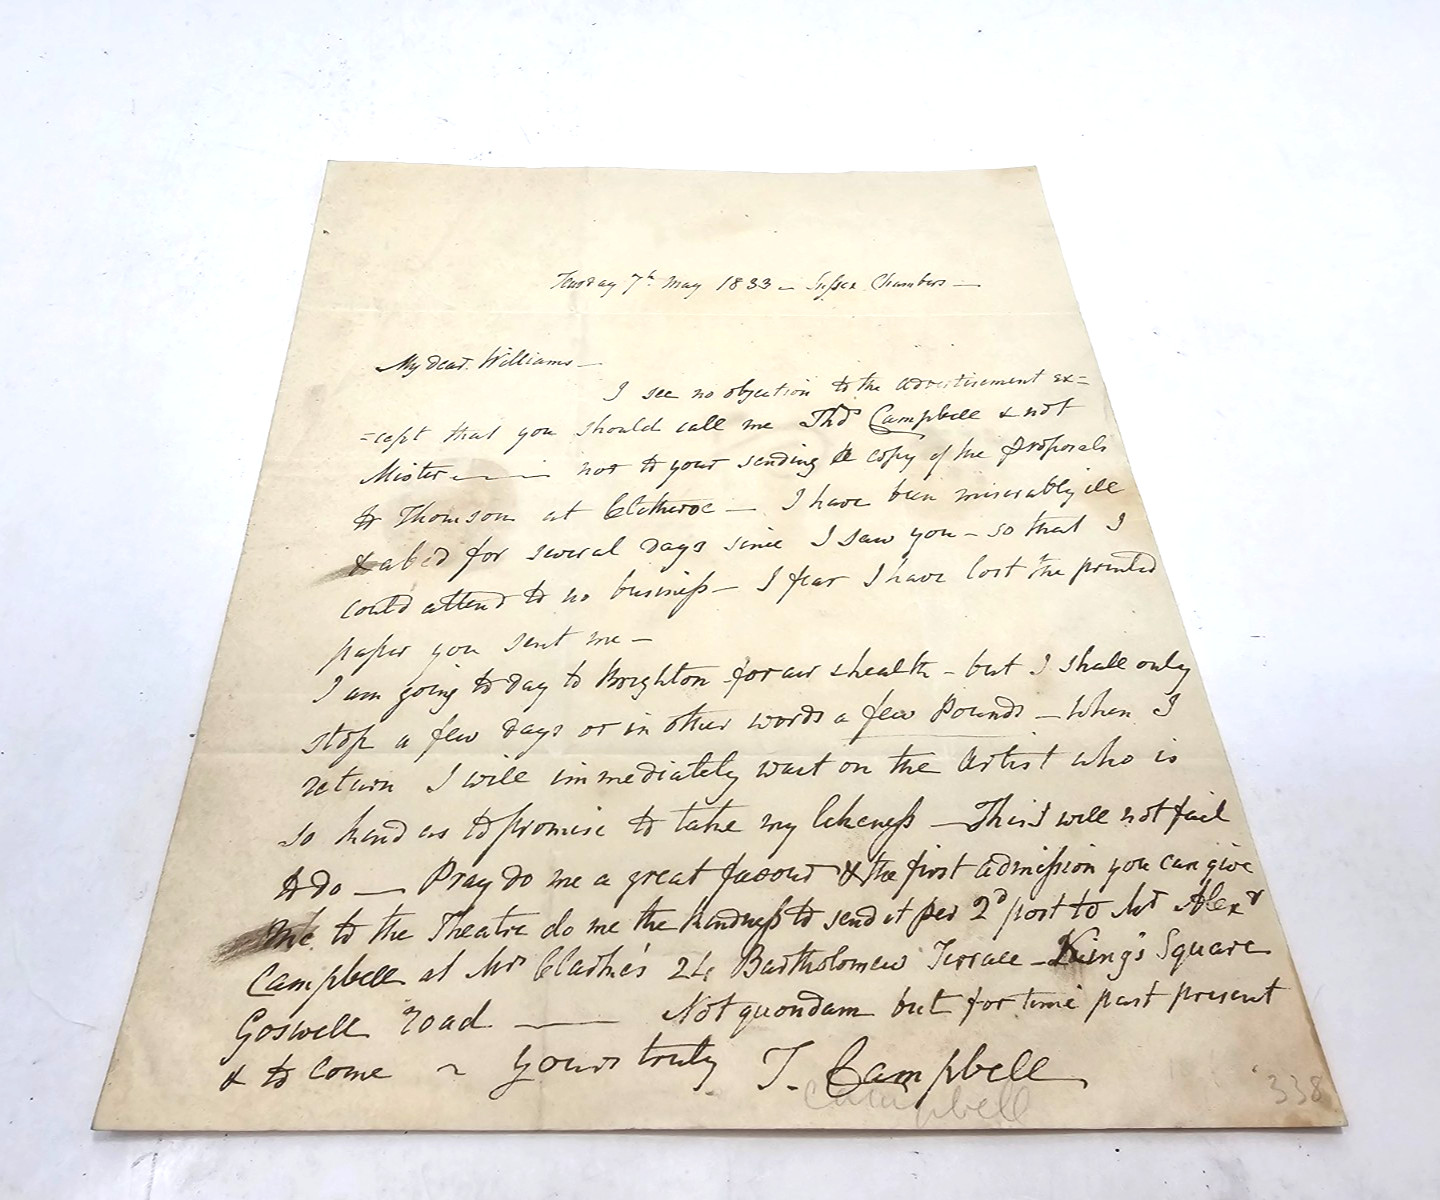 Tuesday 7th May 1833 — Sussex Chambers —
My dear Williams —
I see no objection to the advertisement ex=
=cept that you should call me Thos Campbell & not
Mister —— nor to your sending a copy of the Proposals
to Thomson at Clitheroe — I have been miserably ill
& abed for several days since I saw you — so that I
could attend to no business — I fear I have lost the printed
paper you sent me —
I am going to day to Brighton for air & health — but I shall only
stop a few days or in other words a few Pounds — When I
return I will immediately wait on the Artist who is
so kind as to promise to take my likeness — This I will not fail
to do — Pray do me a great favour & the first admission you can give
me to the Theatre do me the kindness to send it per 2d post to Mr Alexr
Campbell at Mrs Clarke's 24 Bartholomew Terrace — King's Square
Goswell road —— Not quondam but for time past present
& to come ~ yours truly T. Campbell
Campbell
338